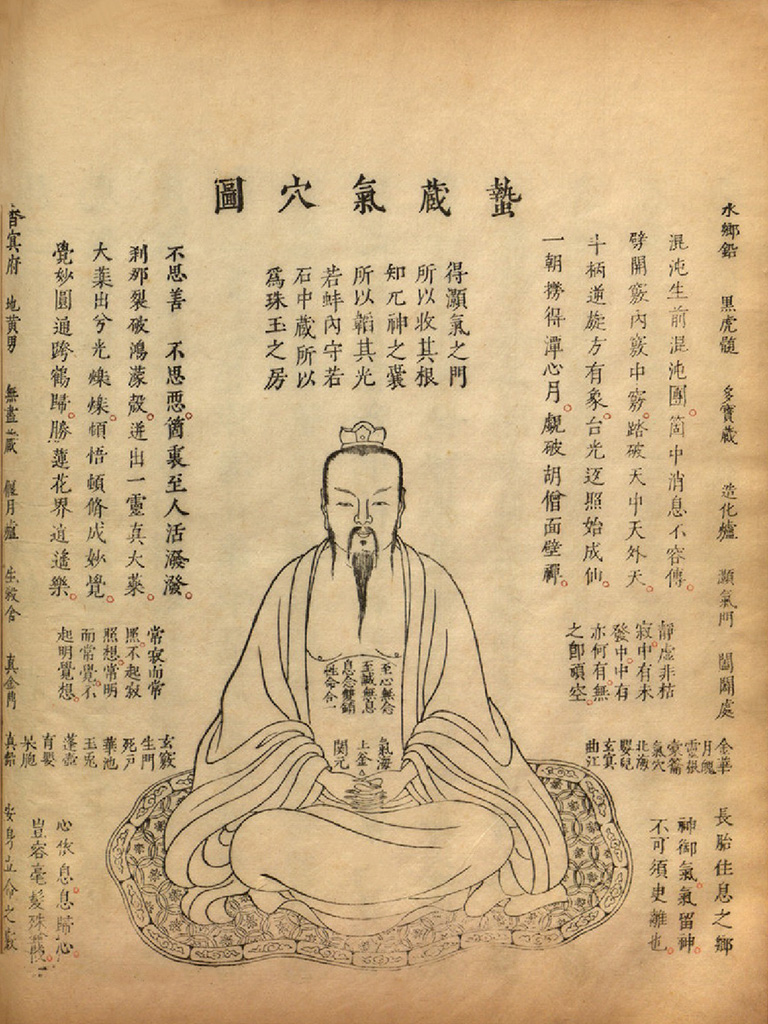 蟄藏氣穴圖
水鄉鉛 黑虎髓 多寶藏 造化爐 灝氣門 闔闢處
長胎住息之鄉
混沌生前混沌團。箇中消息不容傳。
劈開竅內竅中竅。踏破天中天外天。
斗柄逆旋方有象。台光返照始成仙。
一朝撈得潭心月。覷破胡僧面壁禪。
靜虛非枯
寂中有未
發中中有
亦何有無
之卽頑空。
金華
月魄
靈根
橐籥
氣穴
北海
嬰兒
玄冥
曲江
神御氣。氣留神。
不可須臾離也。
得灝氣之門
所以收其根
知元神之囊
所以韜其光
若蚌內守若
石中藏所以
爲珠玉之房
至心無念
至誠無息
息念雙銷
性命合一
氣海
上釜
關元
不思善 不思惡。箇裏至人活潑潑。
刹那裂破鴻蒙殼。迸出一靈真大藥。
大藥出兮光爍爍。頓悟頓脩成妙覺。
覺妙圓通跨鶴歸。勝蓮花界逍遙樂。
常寂而常
照不起寂
照想常明
而常覺。不
起明覺想。
玄竅
生門
死戶
華池
玉兎
蓬壺
育嬰
心依息。息歸心。
豈容毫髮殊
杳冥府 地黃男 無盡藏 偃月爐 生殺舍 真金門 真鉛
安身立命之竅